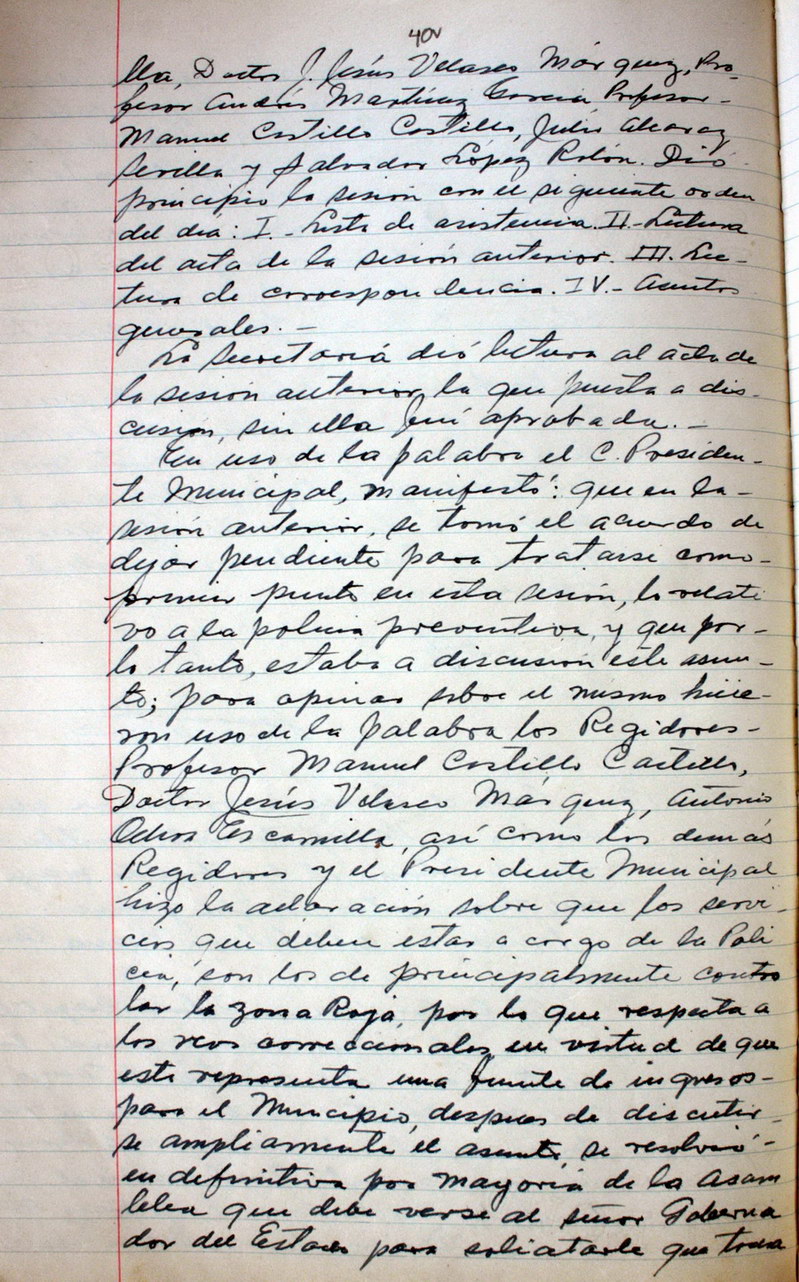 40v
lla, Doctor J. Jesús Velasco Márquez, Pro-
fesor Andrés Martínez García Profesor-
Manuel Castillo Castillo, Julio Alcaraz
Sevilla y Salvador López Rolón. Dió
principio la sesión con el siguiente orden
del dia: I.- Lista de asistencia. II.- Lectura
del acta de la sesión anterior. III. Lec-
tura de correspondencia. IV.- Asuntos
generales.-
La Secretaría dió lectura al acta de
la sesión anterior, la que puesta a dis-
cusion, sin ella fué aprobada.-
En uso de la palabra el C. Presiden-
te Municipal, manifestó: que en la-
sesión anterior, se tomó el acuerdo de
dejar pendiente para tratarse como-
primer punto en esta sesión, lo relati
vo a la policia preventiva, y que por-
lo tanto, estaba a discusion este asun-
to; para opinar sobre el mismo hicie-
ron uso de la palabra los Regidores-
Profesor Manuel Castillo Castillo,
Doctor Jesús Velasco Márquez, Antonio
Ochoa Escamilla, así como los demás
Regidores y el Presidente Municipal
hizo la aclaración sobre que los servi-
cios que deben estar a cargo de la Poli
cia, son los de principalmente contro
lar la zona Roja, por lo que respecta a
los reos correccionales en virtud de que
este representa una fuente de ingresos-
para el Municipio, despues de discutir-
se ampliamente el asunto, se resolvió-
en definitiva por mayoría de la Asam
blea que debe verse al señor Goberna
dor del Estado para solicitarle que toda